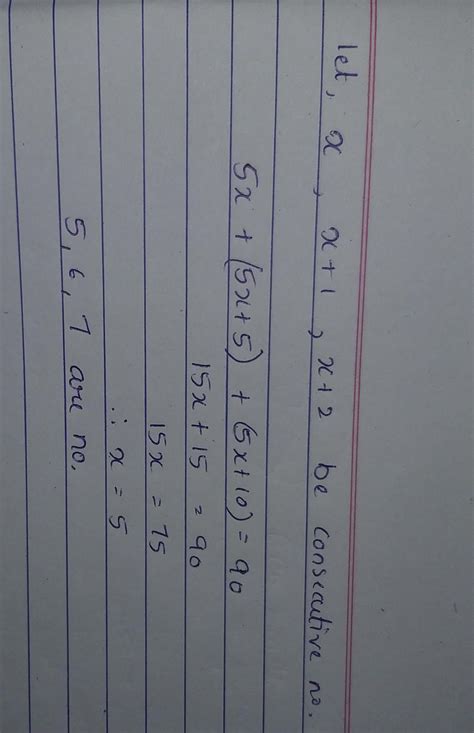 let, x, x+1, x+2 be consecutive no.
5x + (5x+5) + (5x+10) = 90
15x + 15 = 90
15x = 75
∴ x = 5
5, 6, 7 are no.